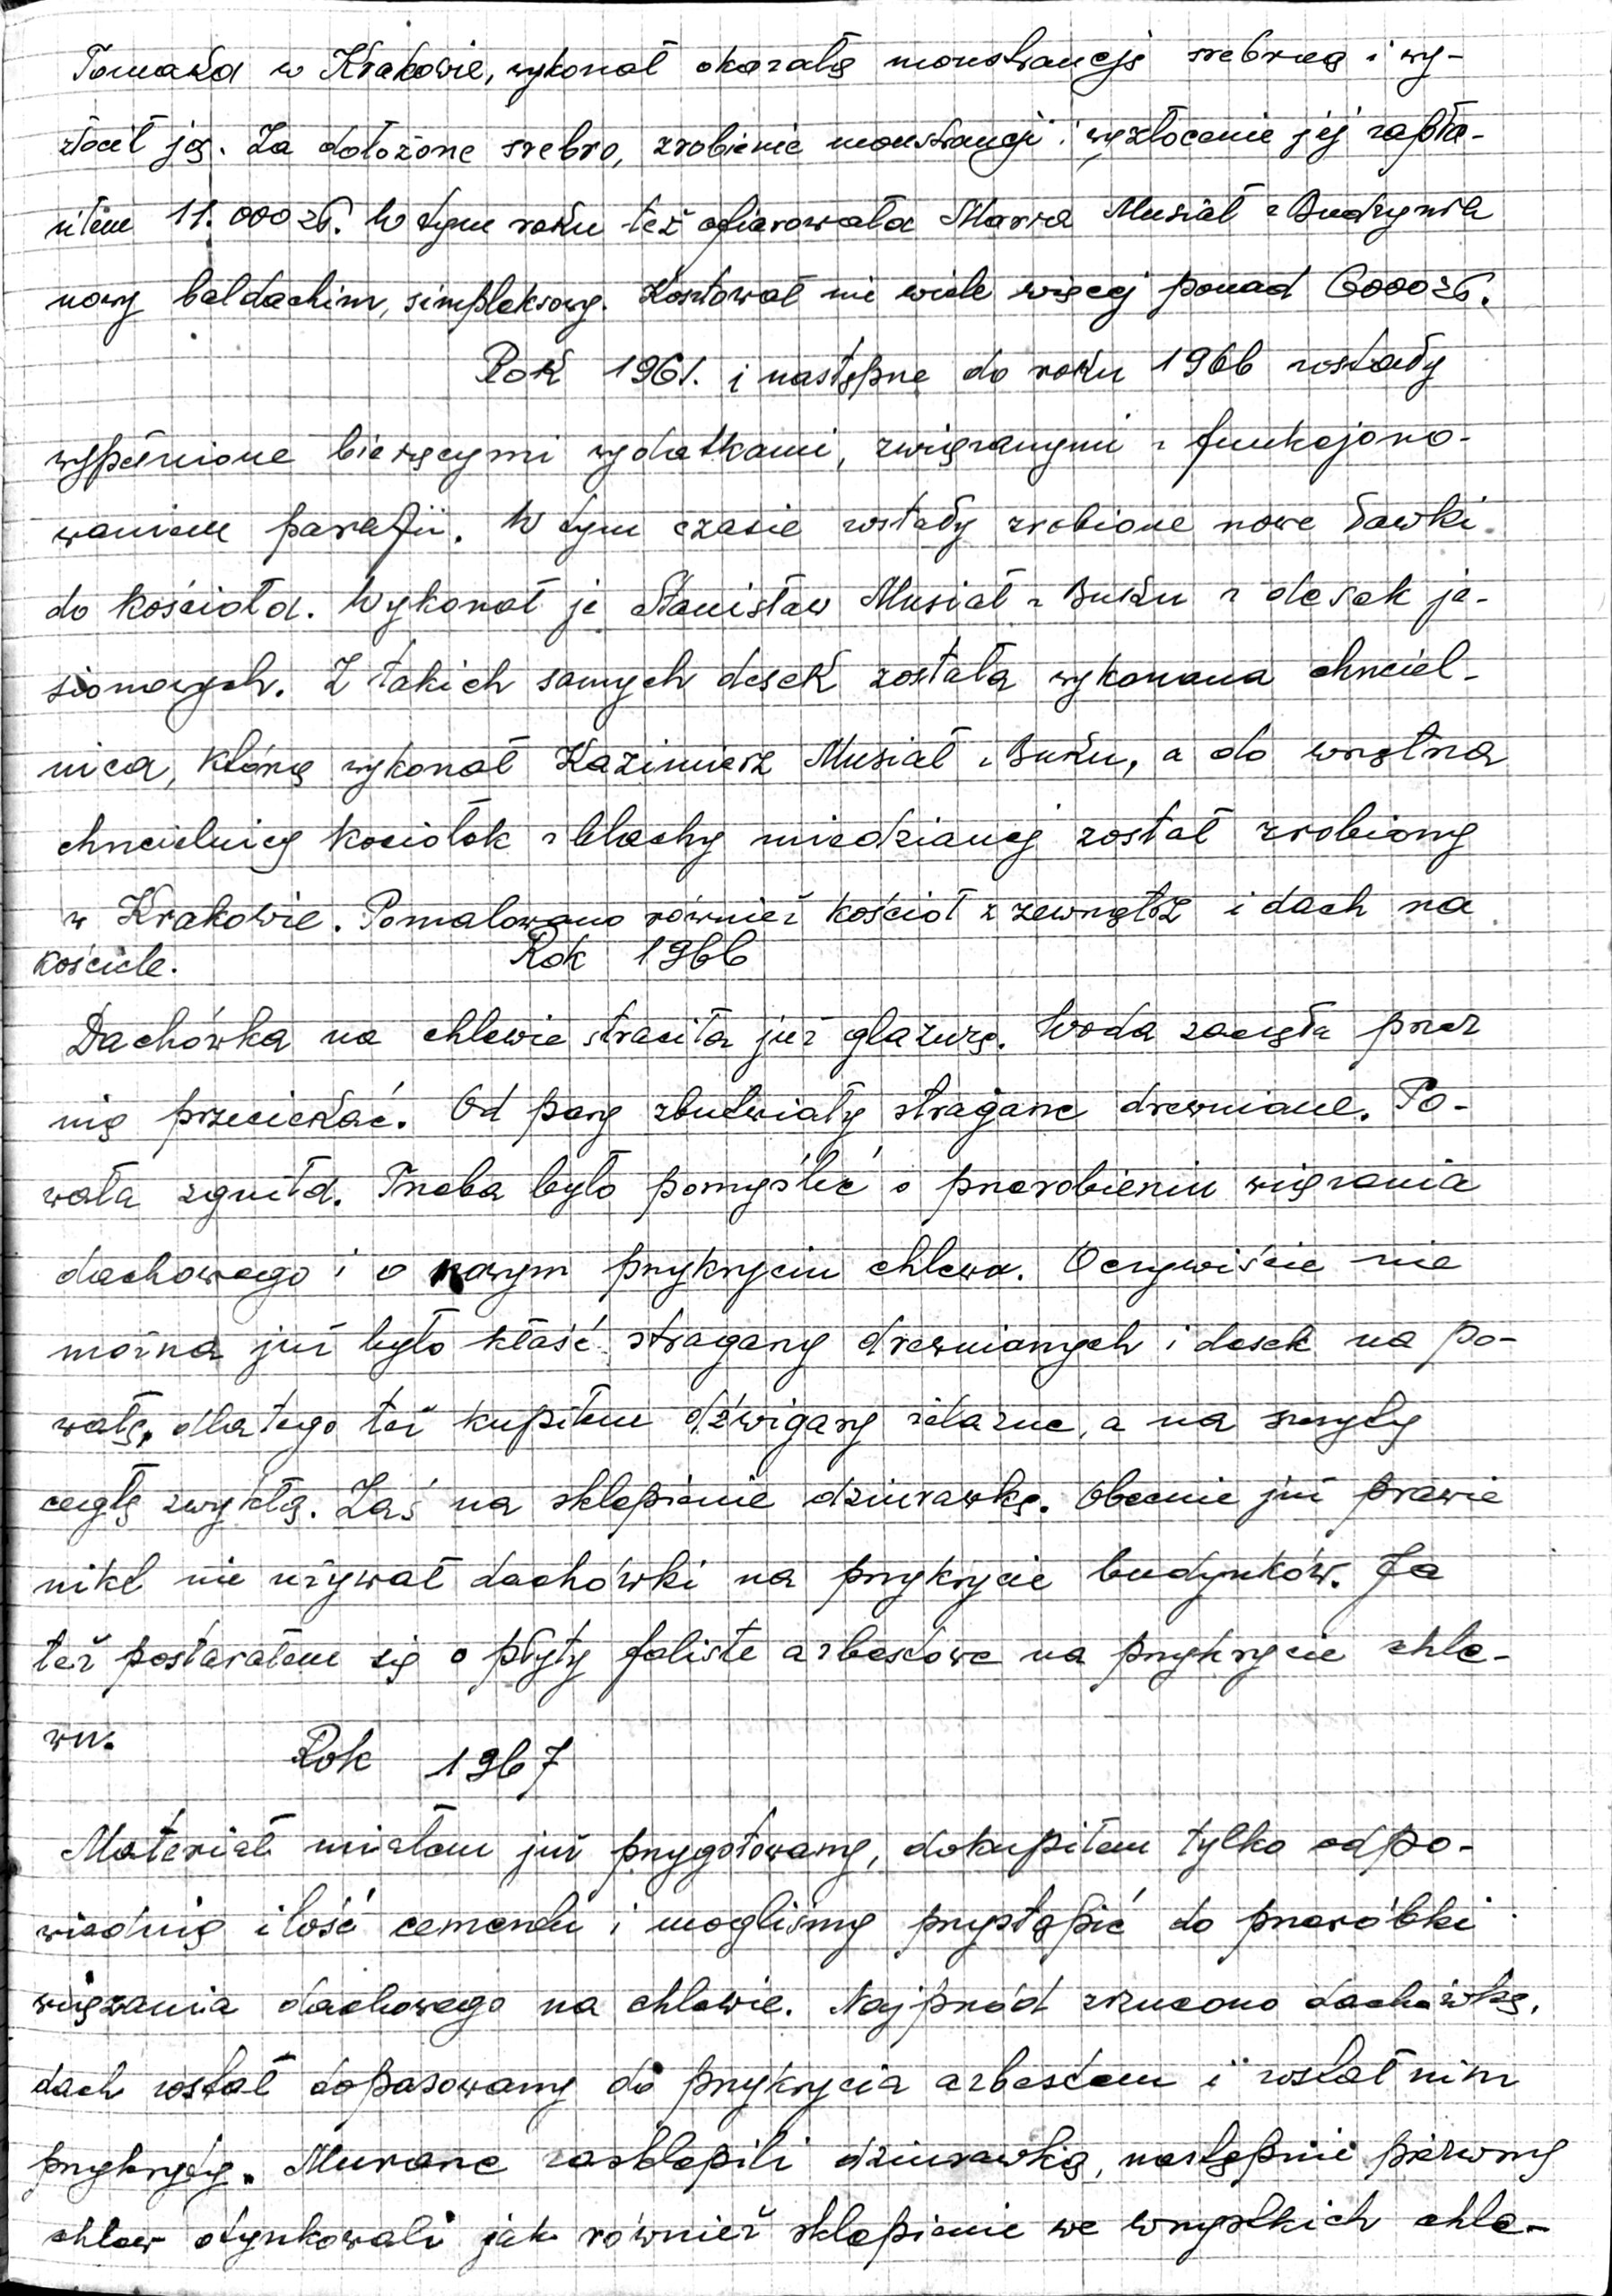 Tomasza w Krakowie, wykonał okazałą monstrancję srebrną i wy-
złocił ją. Za dołożone srebro, zrobienie monstrancji i wyzłocenie jej zapła-
ciłem 11.000 zł. W tym roku też ofiarowała Maria Musiał z Budzynia
nowy baldachim, simpleksowy. Kosztował nie wiele więcej ponad 6000 zł.
Rok 1961. i następne do roku 1966 zostały
wypełnione bieżącymi wydatkami, związanymi z funkcjono-
waniem parafii. W tym czasie zostały zrobione nowe ławki
do kościoła. Wykonał je Stanisław Musiał z Buku z desek je-
sionowych. Z takich samych desek została wykonana chrzciel-
nica, którą wykonał Kazimierz Musiał z Buku, a do wnętrza
chrzcielnicy kociołek z blachy miedzianej został zrobiony
w Krakowie. Pomalowano również kościół z zewnątrz i dach na
kościele.
Rok 1966
Dachówka na chlewie straciła już glazurę. Woda zaczęła przez
nią przeciekać. Od pary zbutwiały stragarze drewniane. Po-
wała zgniła. Trzeba było pomyśleć o przerobieniu wiązania
dachowego i o nowym przykryciu chlewa. Oczywiście nie
można już było kłaść stragarzy drewnianych i desek na po-
wałę, dlatego też kupiłem dźwigary żelazne, a na szczyty
cegłę zwykłą. Zaś na sklepienie dziurawkę. Obecnie już prawie
nikt nie używał dachówki na przykrycie budynków. Ja
też postarałem się o płyty faliste azbestowe na przykrycie chle-
wu.
Rok 1967
Materiał miałem już przygotowany, dokupiłem tylko odpo-
wiednią ilość cementu i mogliśmy przystąpić do przeróbki
wiązania dachowego na chlewie. Najprzód zrzucono dachówkę,
dach został dopasowany do przykrycia azbestem i został nim
przykryty. Murarze zasklepili dziurawką, następnie pierwszy
chlew otynkowali jak również sklepienie we wszystkich chle-